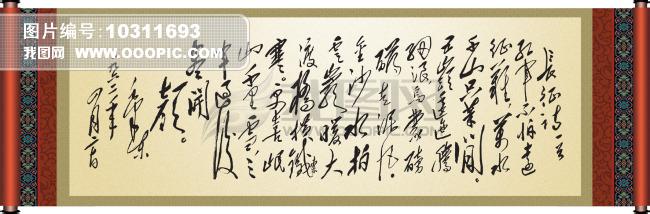 图片编号: 10311693
我图网 WWW.OOOPIC.COM
长征诗一首
红军不怕远
征难万水
千山只等闲
五嶺逶迤腾
细浪乌蒙磅
礴走泥丸
金沙水拍
雲崖暖大
渡橋横鐵
索寒。更喜岷
山千里雪三
军过後
尽开
颜。
毛泽东
一九六二年
四月廿日